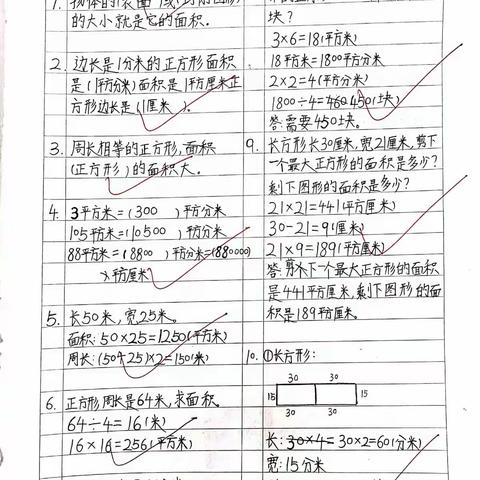 1. 物体的(表面)或
的大小就是它的面积。
2. 边长是1分米的正方形面积
是(1平方分米)面积是1平方厘米正
方形边长是(1厘米)。
3. 周长相等的正方形,面积
(正方形)的面积大。
4. 3平方米=(300)平方分米
105平方米=(10500)平方分米
88平方米=(8800)平方分米=(880000)
平方厘米
5. 长50米,宽25米。
面积:50×25=1250(平方米)
周长:(50+25)×2=150(米)
6. 正方形周长是64米,求面积。
64÷4=16(米)
16×16=256(平方米)
块?
3×6=18(平方米)
18平方米=1800平方分米
2×2=4(平方分米)
1800÷4=450(块)
答:需要450块。
9. 长方形长30厘米,宽21厘米,剪下
一个最大正方形的面积是多少?
剩下图形的面积是多少?
21×21=441(平方厘米)
30-21=9(厘米)
21×9=189(平方厘米)
答:剪下一个最大正方形的面积
是441平方厘米,剩下图形的面
积是189平方厘米。
10. ①长方形:
30 30
15 15
30 30
长:30×4=30×2=60(分米)
宽:15分米